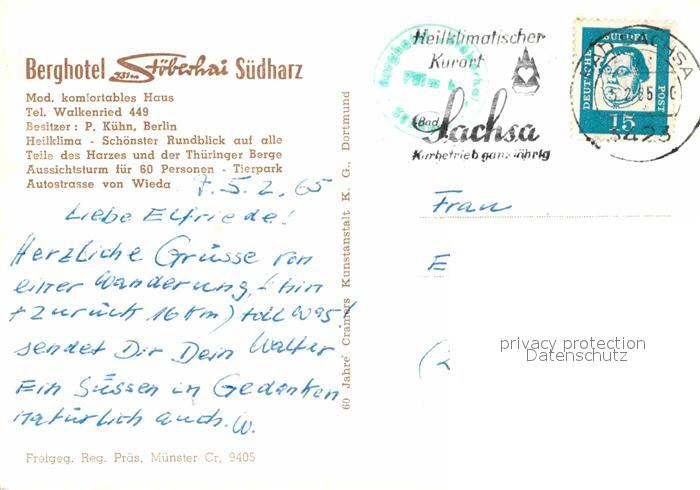 Berghotel 731m Stöberhai Südharz
Mod. komfortables Haus
Tel. Walkenried 449
Besitzer: P. Kühn, Berlin
Heilklima - Schönster Rundblick auf alle
Teile des Harzes und der Thüringer Berge
Aussichtsturm für 60 Personen - Tierpark
Autostrasse von Wieda
5.2.65
Liebe Elfriede!
Herzliche Grüsse von
einer Wanderung, (hin
+ zurück 16 Km) toll was!
sendet Dir Dein Walter
Ein Süssen in Gedanken
natürlich auch. W.
Freigeg. Reg. Präs. Münster Cr. 9405
60 Jahre Cramers Kunstanstalt K. G., Dortmund
Heilklimatischer
Kurort
Bad Sachsa
Kurbetrieb ganzjährig
DEUTSCHE BUNDESPOST
15
SACHSA
3423
Frau
E
privacy protection
Datenschutz